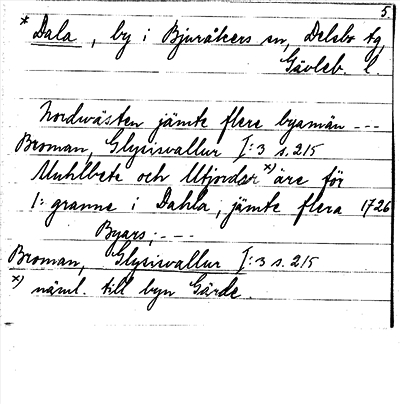 5
* Dala, by i Bjuråkers sn, Delsbo tg,
Gävleb. l.
Nordwästen jämte flere byamän ---
Broman, Glysisvallur I:3 s. 215
Muhlbete och Utjorder x) äre för
1: granne i Dahla, jämte flera 1726
Byars; ---
Broman, Glysisvallur I:3 s. 215
x) näml. till byn Gärde.